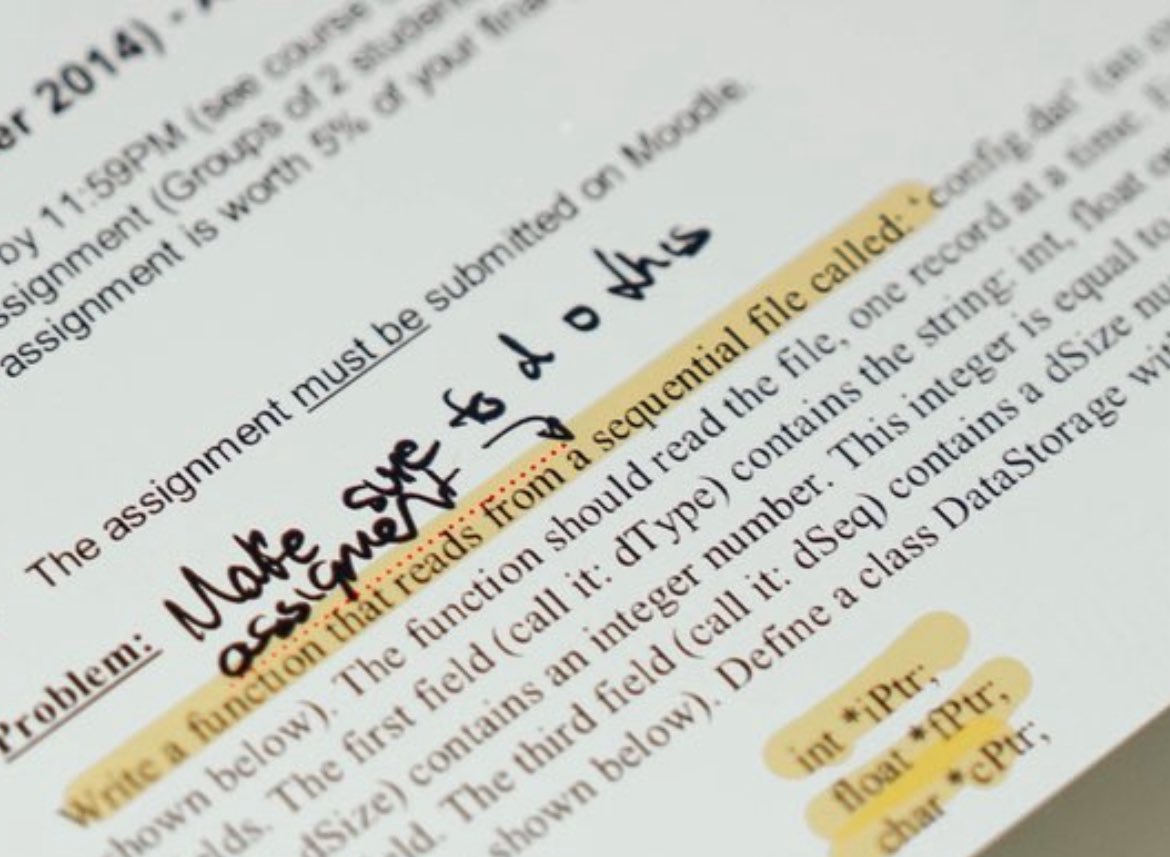 er 2014) -
by 11:59PM (see course
ssignment (Groups of 2 student
assignment is worth 5% of your final
The assignment must be submitted on Moodle.
Make sure
assignment to do this
Problem:
Write a function that reads from a sequential file called: ‘config.dat’ (an
shown below). The function should read the file, one record at a time.
elds. The first field (call it: dType) contains the string: int, float o
dSize) contains an integer number. This integer is equal to
eld. The third field (call it: dSeq) contains a dSize nu
shown below). Define a class DataStorage wit
int *iPtr;
float *fPtr;
char *cPtr;